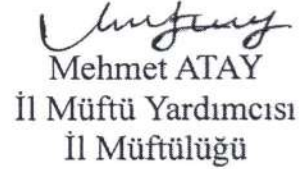 Mehmet ATAY
İl Müftü Yardımcısı
İl Müftülüğü